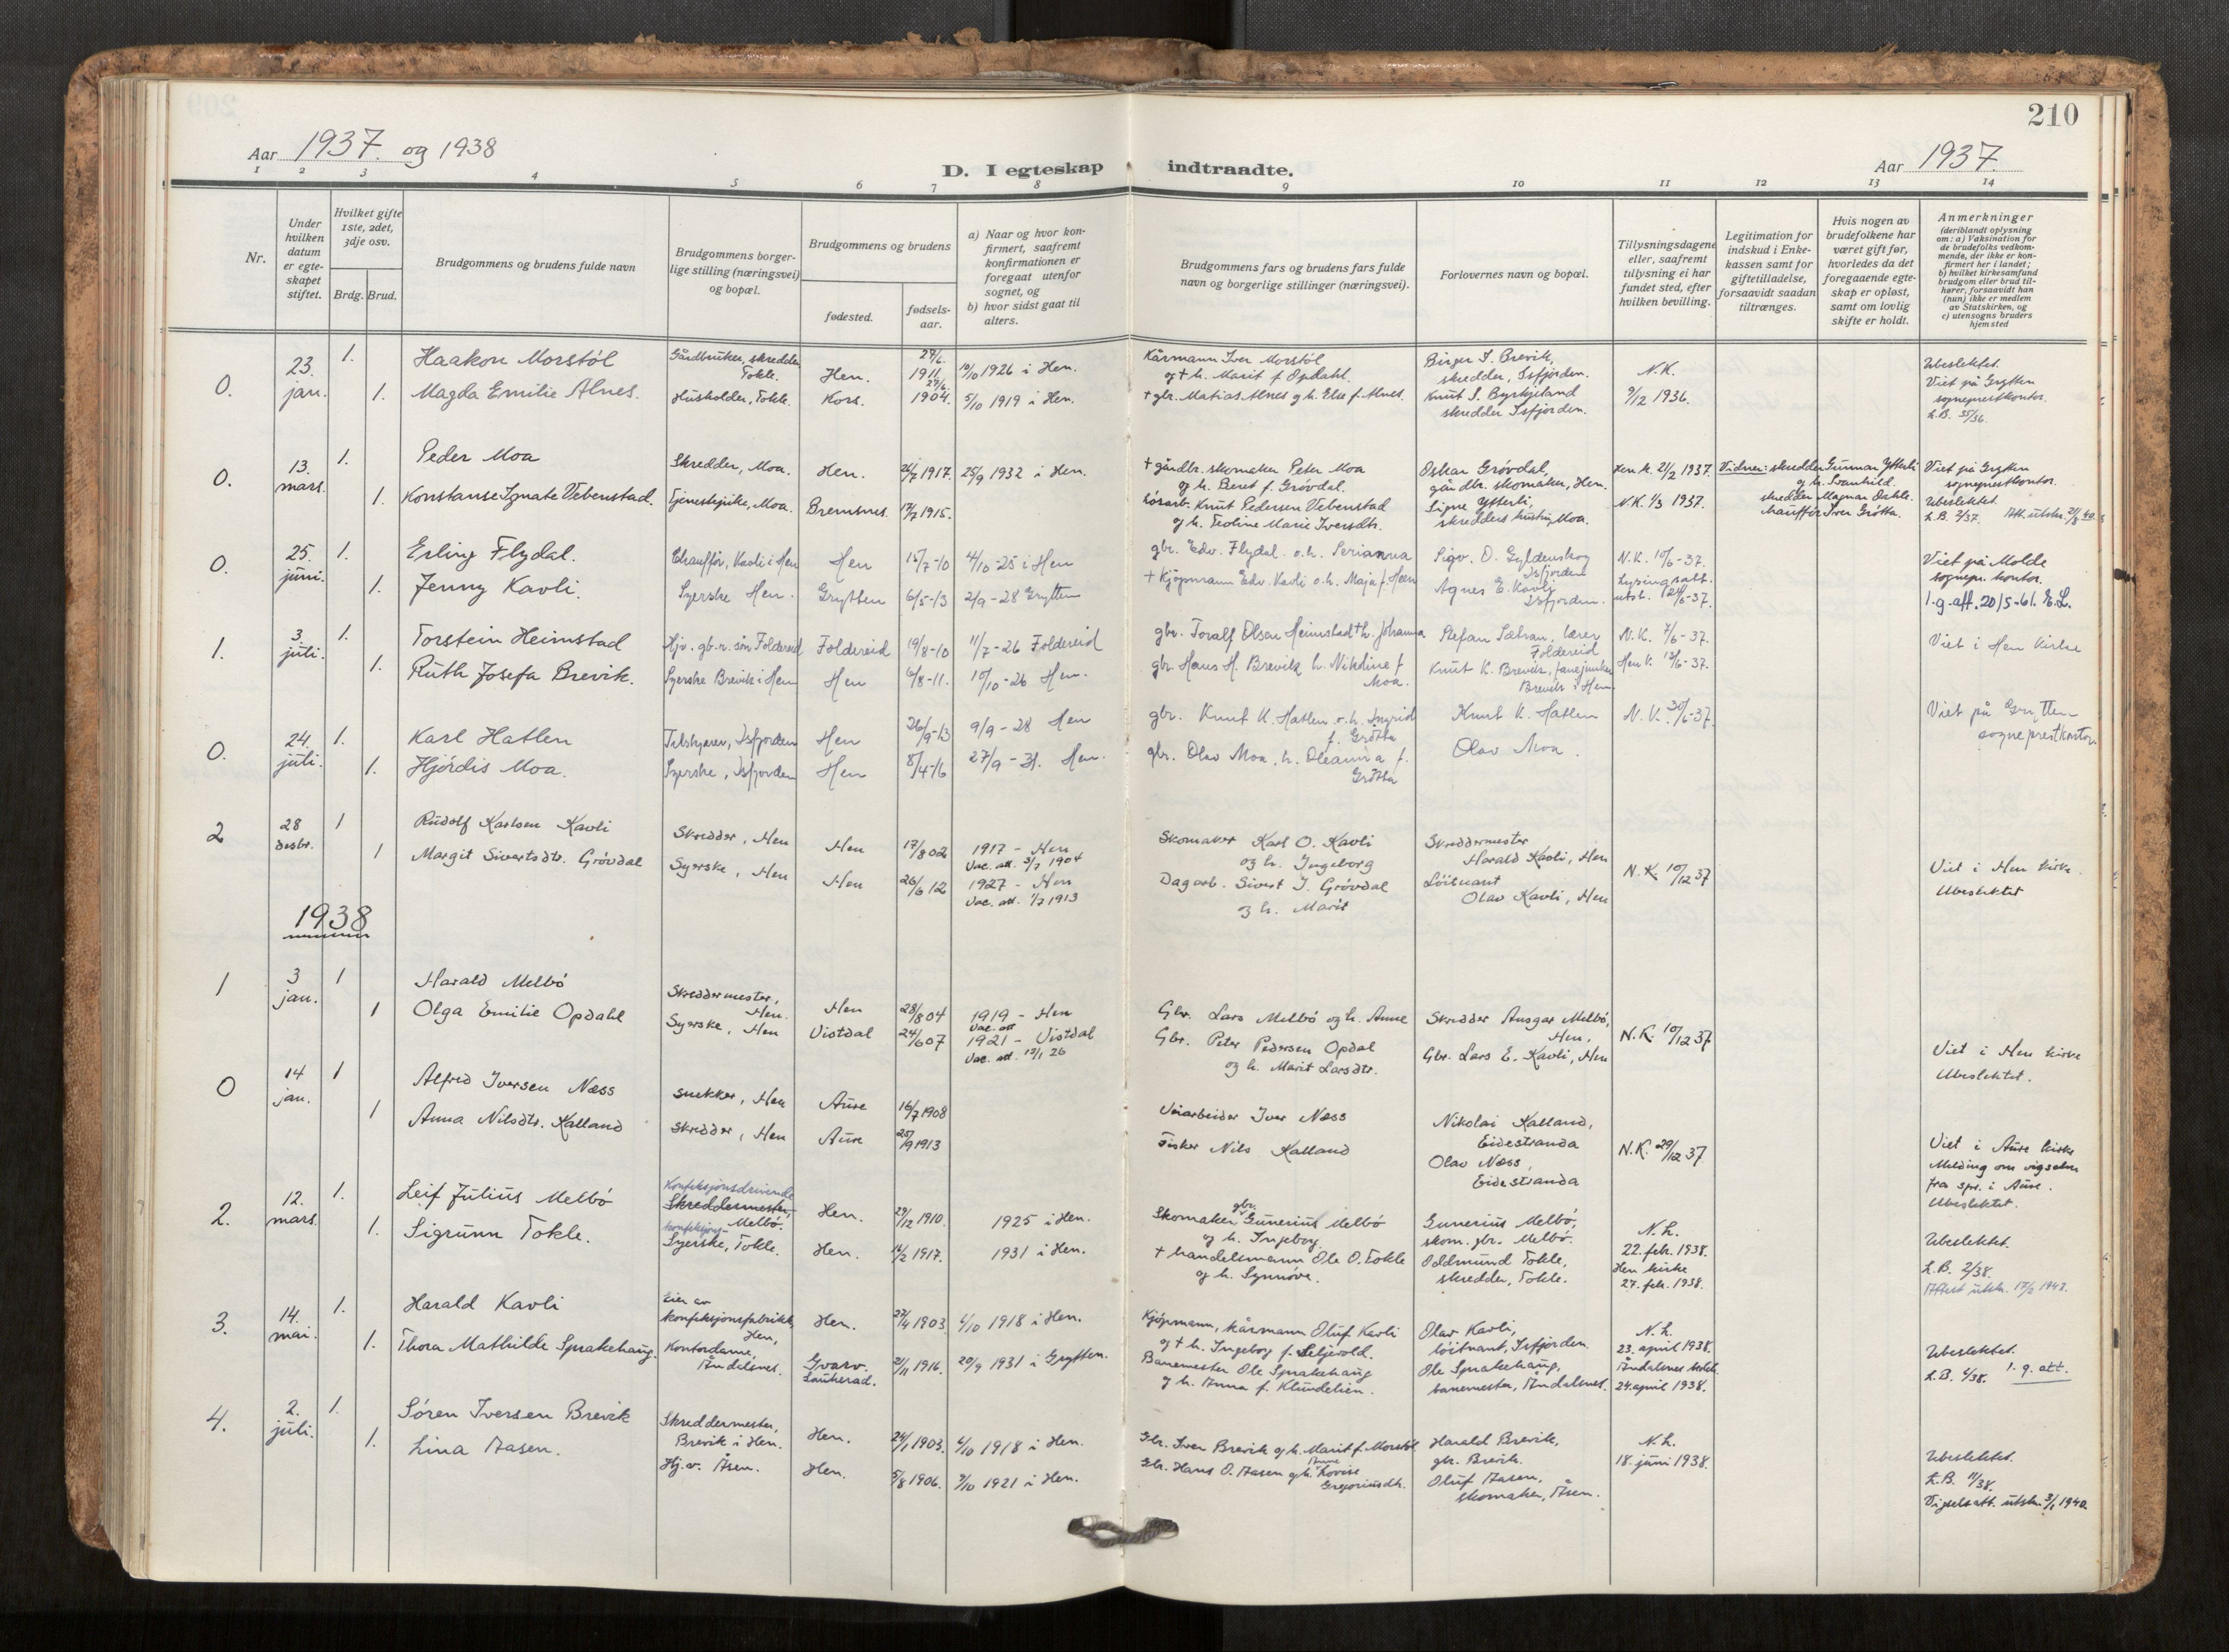 210
Aar 1937. og 1938
D. I egteskap indtraadte.
Aar 1937.
1 2 3 4 5 6 7 8 9 10 11 12 13 14
Nr.
Under hvilken datum er egteskapet stiftet.
Hvilket gifte 1ste, 2det, 3dje osv.
Brdg. Brud.
Brudgommens og brudens fulde navn
Brudgommens borgerlige stilling (næringsvei) og bopæl.
Brudgommens og brudens
fødested.
fødselsaar.
a) Naar og hvor konfirmert, saafremt konfirmationen er foregaat utenfor sognet, og
b) hvor sidst gaat til alters.
Brudgommens fars og brudens fars fulde navn og borgerlige stillinger (næringsvei).
Forlovernes navn og bopæl.
Tillysningsdagene eller, saafremt tillysning ei har fundet sted, efter hvilken bevilling.
Legitimation for indskud i Enkekassen samt for giftetilladelse, forsaavidt saadan tiltrænges.
Hvis nogen av brudefolkene har været gift før, hvorledes da det foregaaende egteskap er opløst, samt om lovlig skifte er holdt.
Anmerkninger
(deriblandt oplysning om: a) Vaksination for de brudefolks vedkommende, der ikke er konfirmert her i landet; b) hvilket kirkesamfund brudgom eller brud tilhører, forsaavidt han (hun) ikke er medlem av Statskirken, og c) utensogns bruders hjemsted
0. 23. jan. 1. Haakon Morstöl Gårdbruker, skredder Tokle. Hen. 1911 10/10 1926 i Hen.
Kårmann Iver Morstöl og † h. Marit f. Opdahl. Birger I. Brevik, skredder, Isfjorden. N.K. 9/2 1936.
1. Magda Emilie Alnes. Husholder, Tokle. Kors. 1904. 5/10 1919 i Hen.
† gbr. Matias Alnes og h. Else f. Alnes. Knut S. skredder Isfjorden.
Ubeslektet. Viet på Grytten sogneprestkontor. L.B. 35/36.
0. 13. mars. 1. Peder Moa Skredder, Moa. Hen. 24/7 1917. 25/9 1932 i Hen.
† gårdbr. skomaker Peter Moa og h. Beret f. Grövdal. Oskar Grövdal, gårdbr. skomaker, Hen. Hen k. 21/2 1937.
1. Konstanse Ignate Vebenstad. Tjenestepike, Moa. Bremsnes. 17/7 1915.
Lösarb. Knut Pedersen Vebenstad og h. Marie Iversdtr. Signe Ytterli, skredders hustru, Moa. N.K. 1/3 1937.
Vidner: skredder Gunnar Ytterli og h. Svanhild. skredder Magnar Dahle. Chauffør Iver Grötta.
Viet på Grytten sogneprestkontor. Ubeslektet. L.B. 2/37. Att. utskr.
0. 25. juni. 1. Erling Flydal. Chauffør, Kavli i Hen Hen 15/7-10 4/10-25 i Hen
gbr. Edv. Flydal o.h. Serianna Sigv. O. Gyldenskog Isfjorden N.K. 10/6-37.
1. Jenny Kavli. Syerske Hen. Grytten 6/5-13 2/9-28 Grytten
† Kjöpmann Edv. Kavli o.h. Maja f. Hen Agnes E. Kavli Isfjorden. Lysingsatt. utst. 24/6-37.
Viet på Molde sognepr. kontor. 1.g.att. 20/5-61. E.L.
1. 3. juli. 1. Torstein Heimstad Hjv. gbr. sön Foldereid Foldereid 19/8-10 11/7-26 Foldereid
gbr. Toralf Olsen Heimstad † h. Johanna Stefan Sætran, lærer Foldereid N.K. 7/6-37.
1. Ruth Josefa Brevik. Syerske Brevik i Hen Hen 6/8-11. 10/10-26 Hen.
gbr. Hans H. Brevik h. Nikoline f. Moa. Knut K. Brevik, fanejunker Brevik i Hen. Hen k. 13/6-37.
Viet i Hen kirke
0. 24. juli. 1. Karl Hatlen Tilskjærer, Isfjorden Hen 26/9-13 9/9-28 Hen
gbr. Knut K. Hatlen o.h. Ingrid f. Grötta Knut K. Hatlen N.K. 30/6-37.
1. Hjördis Moa. Syerske, Isfjorden Hen 8/4-16 27/9-31. Hen.
gbr. Olav Moa, h. Oleanna f. Grötta Olav Moa.
Viet på Grytten sogneprestkontor.
2 28 desbr. 1 Rudolf Karlsen Kavli Skredder, Hen Hen 17/8 02 1917 - Hen Vac. att. 3/7 1904
Skomaker Karl O. Kavli og h. Ingeborg Skreddermester Harald Kavli, Hen
1 Margit Sivertsdtr. Grövdal Syerske, Hen Hen 26/6 12 1927 - Hen Vac. att. 1/7 1913
Dagarb. Sivert J. Grövdal og h. Marit Löitnant Olav Kavli, Hen N.K. 10/12 37
Viet i Hen kirke. Ubeslektet
1938
1 3 jan. 1 Harald Melbö Skreddermester, Hen. Hen 28/8 04 1919 - Hen Vac. att
Gbr. Lars Melbö og h. Anne Skredder Ansgar Melbö, Hen.
1 Olga Emilie Opdahl Syerske, Hen Vistdal 24/6 07 1921 - Vistdal Vac. att. 15/1 26
Gbr. Peter Pedersen Opdal og h. Marit Larsdtr. Gbr. Lars E. Kavli, Hen N.K. 10/12 37
Viet i Hen kirke Ubeslektet.
0 14 jan. 1 Alfred Iversen Næss snekker, Hen Aure 16/7 1908
Veiarbeider Iver Næss Nikolai Kalland, Eidestranda
1 Anna Nilsdtr. Kalland skredder, Hen Aure 25/9 1913
Fisker Nils Kalland Olav Næss, Eidestranda N.K. 29/12 37
Viet i Aure kirke Melding om vigselen fra spr. i Aure. Ubeslektet.
2. 12. mars. 1. Leif Julius Melbö Konfeksjonsdrivende Skreddermester, Melbö. Hen. 29/12 1910. 1925 i Hen.
Skomaker gbr. Gunerius Melbö og h. Ingeborg. Gunerius Melbö, skom. gbr. Melbö. N.L. 22. feb. 1938.
1. Sigrunn Tokle. konfeksjons- Syerske, Tokle. Hen. 16/2 1917. 1931 i Hen.
† handelsmann Ole O. Tokle og h. Synnöve. Oddmund Tokle, skredder, Tokle. Hen kirke 27. feb. 1938.
Ubeslektet. L.B. 2/38. Attest utskr. 17/2 1943.
3. 14. mai. 1. Harald Kavli Eier av konfeksjonsfabrikk, Hen. Hen. 27/4 1903. 6/10 1918 i Hen.
Kjöpmann, kårmann Oluf Kavli og † h. Ingeborg f. Seljevold. Olav Kavli, löitnant, Isfjorden. N.L. 23. april 1938.
1. Thora Mathilde Sprakehaug. Kontordame, Åndalsnes. Gvarv. Sauherad. 21/11 1916. 20/9 1931 i Grytten.
Banemester Ole Sprakehaug og h. Anna f. Klundelien. Ole Sprakehaug, banemester, Åndalsnes. Åndalsnes 24. april 1938.
Ubeslektet. L.B. 4/38. 1. g. att.
4. 2. juli. 1. Sören Iversen Brevik Skreddermester, Brevik i Hen. Hen. 24/1 1903. 6/10 1918 i Hen.
Gbr. Iver Brevik og h. Marit f. Morstöl Harald Brevik, gbr. Brevik. N.L. 18. juni 1938.
1. Lina Aasen. Hj.v. Åsen. Hen. 5/8 1906. 9/10 1921 i Hen.
Gbr. Hans O. Aasen og h. Anne Lovise Gregoriusdtr. Oluf Aasen, skomaker, Åsen.
Ubeslektet. L.B. 11/38. Vigselsatt. utskr. 3/1 1940.